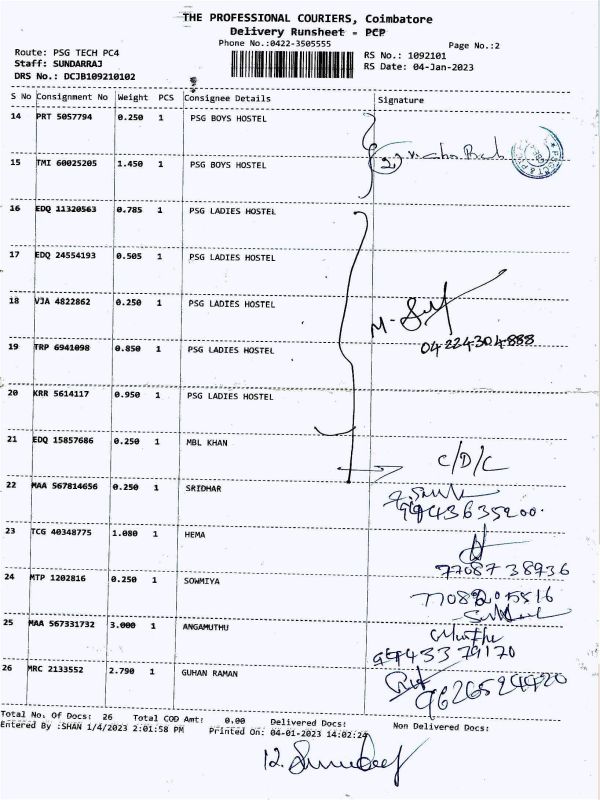 THE PROFESSIONAL COURIERS, Coimbatore
Delivery Runsheet - PCP
Phone No.:0422-3505555
Page No.:2
Route: PSG TECH PC4
RS No.: 1092101
Staff: SUNDARRAJ
RS Date: 04-Jan-2023
DRS No.: DCJB109210102
S No Consignment No Weight PCS Consignee Details Signature
14 PRT 5057794 0.250 1 PSG BOYS HOSTEL
15 TMI 60025205 1.450 1 PSG BOYS HOSTEL
16 EDQ 11320563 0.785 1 PSG LADIES HOSTEL
17 EDQ 24554193 0.505 1 PSG LADIES HOSTEL
18 VJA 4822862 0.250 1 PSG LADIES HOSTEL
04224304888
19 TRP 6941098 0.850 1 PSG LADIES HOSTEL
20 KRR 5614117 0.950 1 PSG LADIES HOSTEL
21 EDQ 15857686 0.250 1 MBL KHAN
C/D/C
22 MAA 567814656 0.250 1 SRIDHAR
9943635200
23 TCG 40348775 1.080 1 HEMA
7708738936
24 MTP 1202816 0.250 1 SOWMIYA
25 MAA 567331732 3.000 1 ANGAMUTHU
9943379170
26 MRC 2133552 2.790 1 GUHAN RAMAN
9626524920
Total No. Of Docs: 26 Total COD Amt: 0.00 Delivered Docs: Non Delivered Docs:
Entered By :SHAN 1/4/2023 2:01:58 PM Printed On: 04-01-2023 14:02:24